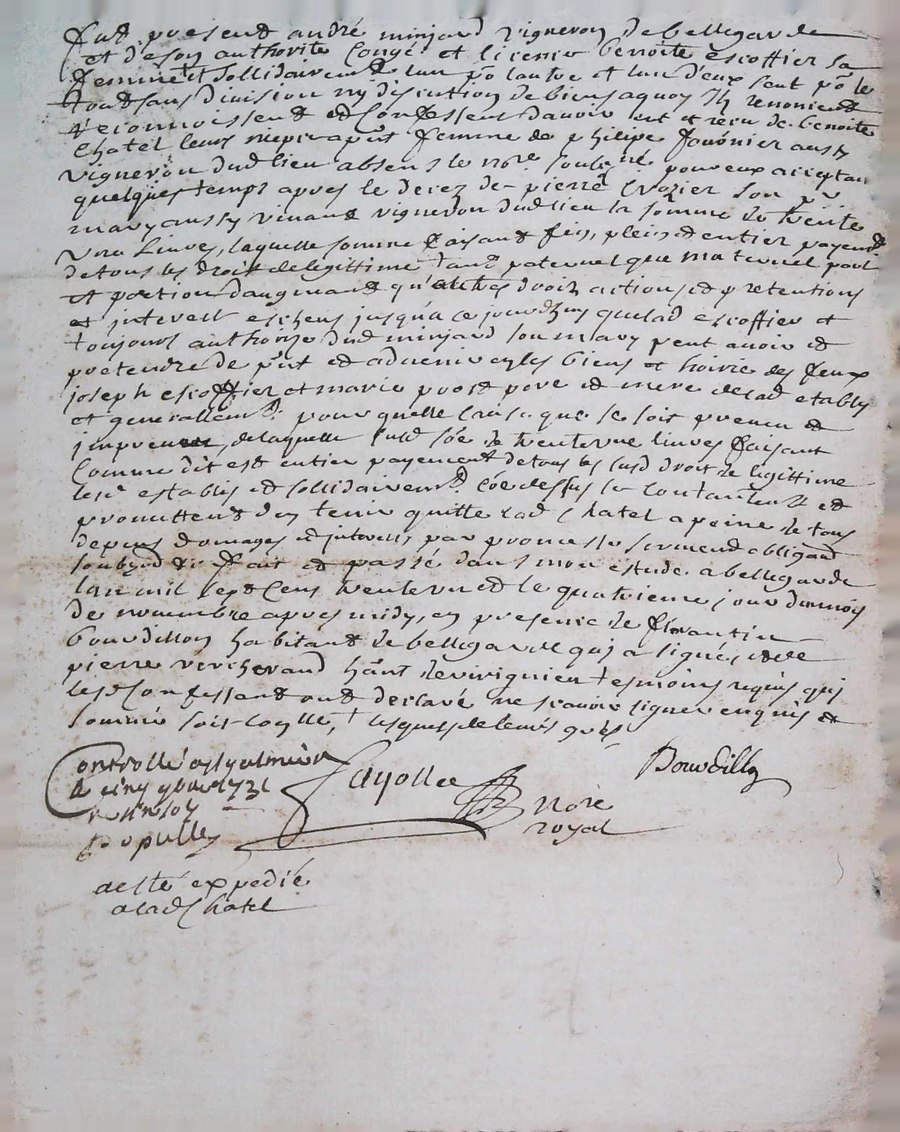 fut present andré minjard vigneron de bellegarde
et de son authorité congé et licence benoite escoffier sa
femme et sollidairemt lun po lautre et lun deux seul po le
tout sans division ny discution de biens a quoy ils renoncent
reconnoissent et confessent d'avoir eut et recu de benoite
chatel leurs niepce a pnt femme de philipe fournier aussy
vigneron dud lieu absent le nore soubne pour eux acceptan
quelques temps apres le decez de pierre Crozier son
mary aussy vivant vigneron dud lieu la somme de trente
une livres, laquelle somme faisant fin, plein et entier payemt
de tous les droit de legittime tant paternel que maternel part
et portion daugmant qu'autres droits actions et pretentions
et interest escheus jusqua ce jourdhuy que lad escoffier et
toujours authorisé dud minjard son mary peut avoir et
pretendre de pnt et advenir es les biens et hoirie des feux
joseph escoffier et marie prost pere et mere de lad etably
et generallemt pour quelle cause que se soit preveu et
impreveu, de laquelle susd soe de trente une livres faisant
comme dit est entier payement de tous les susd droit de legittime
les establis et sollidairemt coe dessus se contantent et
promettent den tenir quitte lad Chatel a peine de tous
depens domages et interests, par promesse serment obligaon
soubzon &c fait et passé dans mon estude a bellegarde
lan mil sept cens trente un et le quatrieme jour du mois
de novembre apres midy, en presence de florantin
bourdillon habitant de bellegarde qui a signé, et de
pierre vercherand hant de virignieu tesmoins requis qui
les confessant ont declaré ne scavoir signer enquis et
sommé soit controllé, + lesquels de leurs gres
Controllé a st galmier
le cinq 9bre 1731
Bourdillon
fayolle
nore
royal
populle
a esté expedié
a lad Chatel